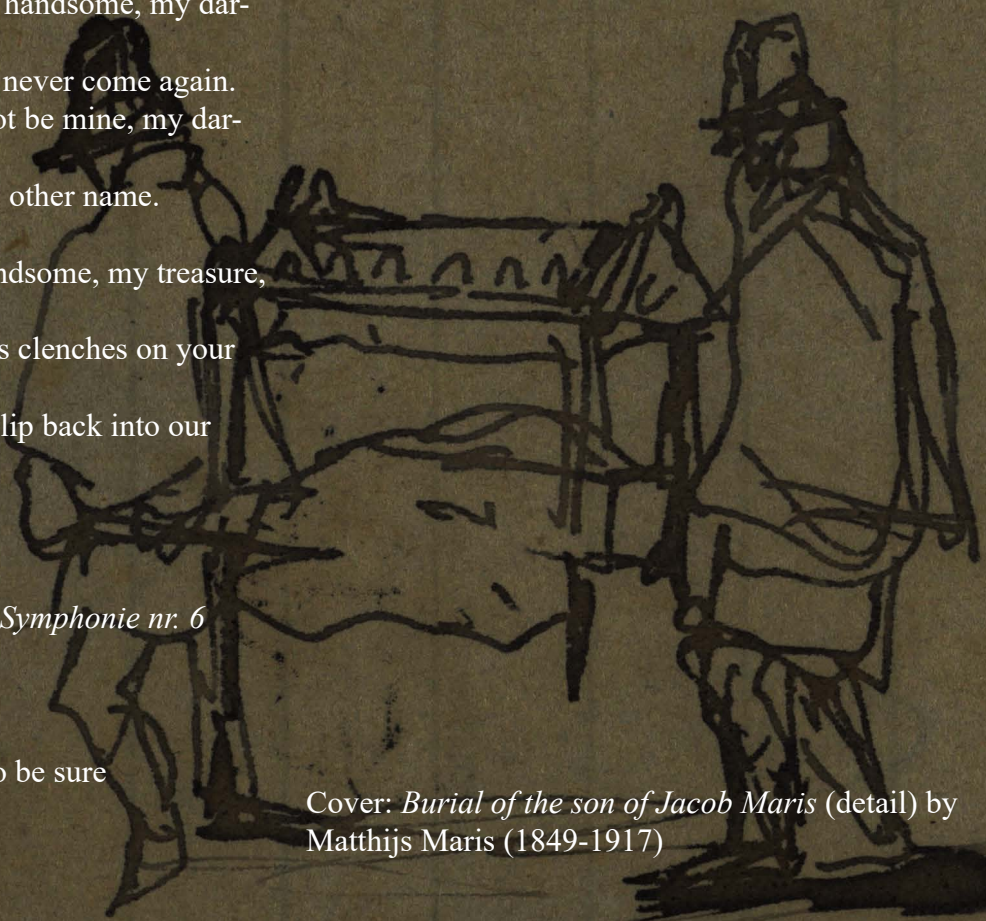 handsome, my dar-
never come again.
ot be mine, my dar-
other name.
ndsome, my treasure,
s clenches on your
lip back into our
Symphonie nr. 6
o be sure
Cover: Burial of the son of Jacob Maris (detail) by
Matthijs Maris (1849-1917)